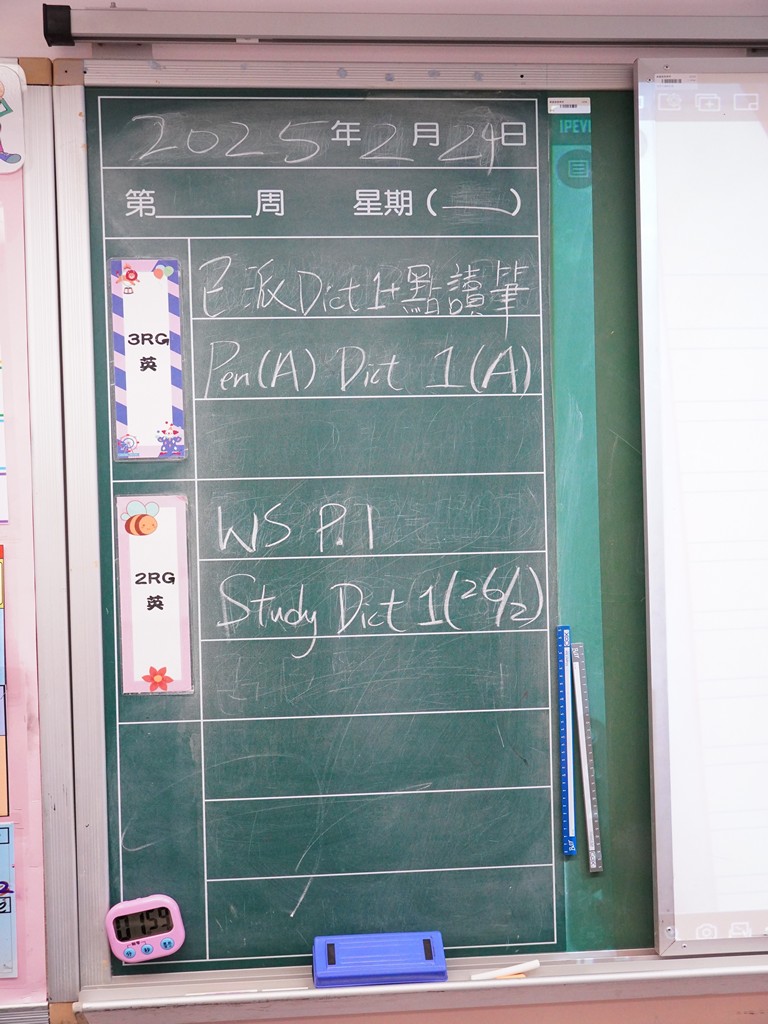 2025年2月24日
第____周 星期(____)
3RG
英
已派Dict 1+點讀筆
Pen(A) Dict 1(A)
2RG
英
WS P.1
Study Dict 1(26/2)
IPEVO
01:59